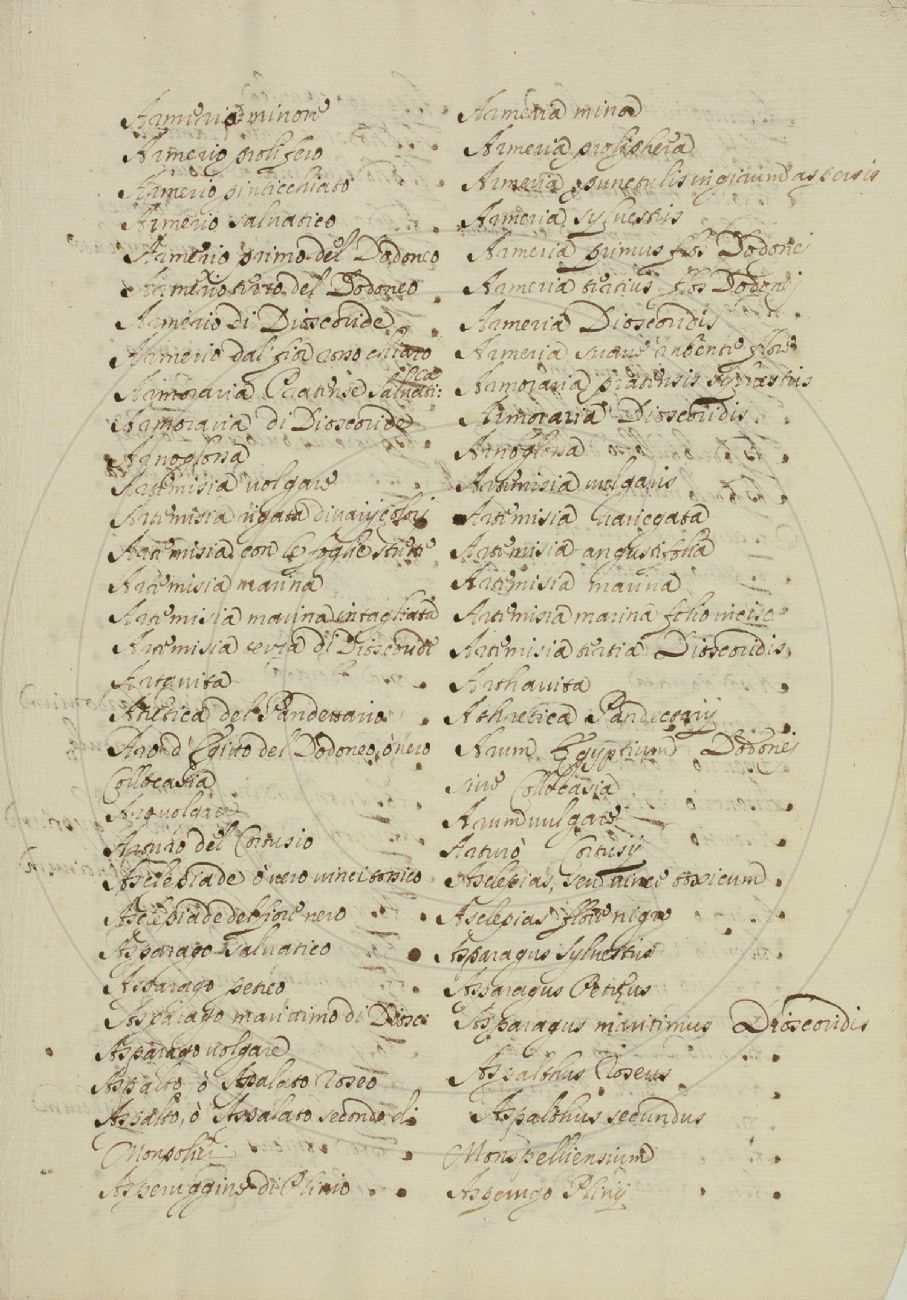 Armerio minore Armeria minor
Armerio prolifero Armeria proliphera
Armerio pinticchiato Armeria punctulis in girum aspersis
Armerio salvatico Armeria sylvestris
Armerio primo del Dodoneo Armeria primus flos Dodonei
Armerio terzo del Dodoneo Armeria tertius flos Dodonei
Armerio di Dioscoride Armeria Dioscoridis
Armerio dal fior rosso chiaro Armeria suave rubente flore
Armoraria Pratense salvati:ca Armoraria pratensis sylvestris
Armoraria di Dioscoride Armoraria Dioscoridis
Arnoglossa Arnoglossa
Artemisia volgare Artemisia vulgaris
Artemisia rigata di varij colori Artemisia variegata
Artemisia con le foglie strette Artemisia angustifolia
Artemisia marina Artemisia marina
Artemisia marina intagliata Artemisia marina folio inciso
Artemisia terza di Dioscoride Artemisia tertia Dioscoridis
Artanita Arthanita
Artetica del Pandettario Arthretica Pandectarij
Aro d'Egitto del Dodoneo, ò vero Arum Egyptium Dodonei
Collocasia sive Collocasia
Aro volgare Arum vulgare
Arturo del Cortusio Arturo Cortusij
Asclepiade ò vero vincitossico Asclepias, seu vince toxicum
Asclepiade del fiore nero Asclepias flore nigro
Asparago salvatico Asparagus sylvestris
Asparago petreo Asparagus Petreus
Asparago marittimo di Diosco: Asparagus maritimus Dioscoridis
Asparago volgare
Aspalto, ò Aspalato roseo Aspalthus Roseus
Aspalto, ò Aspalato secondo di Aspalthus secundus
Monpolieri Monspelliensium
Asperuggine di Plinio Asperugo Plinij